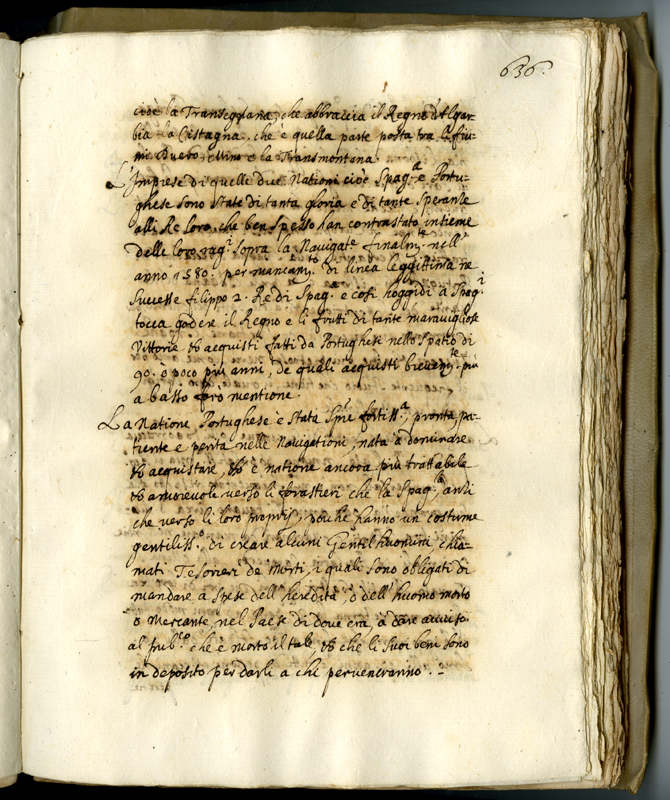 636.
cioè la Transegtana, che abbraccia il Regno d'Algar-
bia la Cistagna, che è quella parte posta tra li fiu-
mi Duero, e Mino e la Transmontana
L'Imprese di quelli due Nationi cioè Spag.a e Portu-
ghese sono state di tanta gloria e di tante speranze
alli Re loro, che ben spesso han contrastato insieme
delle loro rag.i sopra la Navigat.e finalm.te nell'
anno 1580. per mancam.to di linea leggittima ne
successe filippo 2. Re di Spag.a e così hoggidi a Spag.i
tocca godere il Regno e li frutti di tante maravigliose
Vittorie et acquisti fatti da Portughesi nello spatio di
90. ò poco più anni, de quali acquisti brevem.te più
a basso farò mentione.
La Natione Portughese è stata Spre fortiss.a, pronta, pa-
tiente e perita nelle Navigationi, nata à dominare
et acquistare, et è natione ancora più trattabile
et amorevole verso li forastieri che la Spag.la, anzi
che verso li loro proprij, poiche hanno un costume
gentiliss.o di creare alcuni Gentilhuomini chia-
mati Tesorieri de Morti, i quali sono obligati di
mandare a spese dell'heredità, ò dell'huomo morto
o Mercante, nel Paese di dove era, a dare avviso
al pub.co che è morto il tale, et che li suoi beni sono
in deposito per darli a chi perveneranno. -